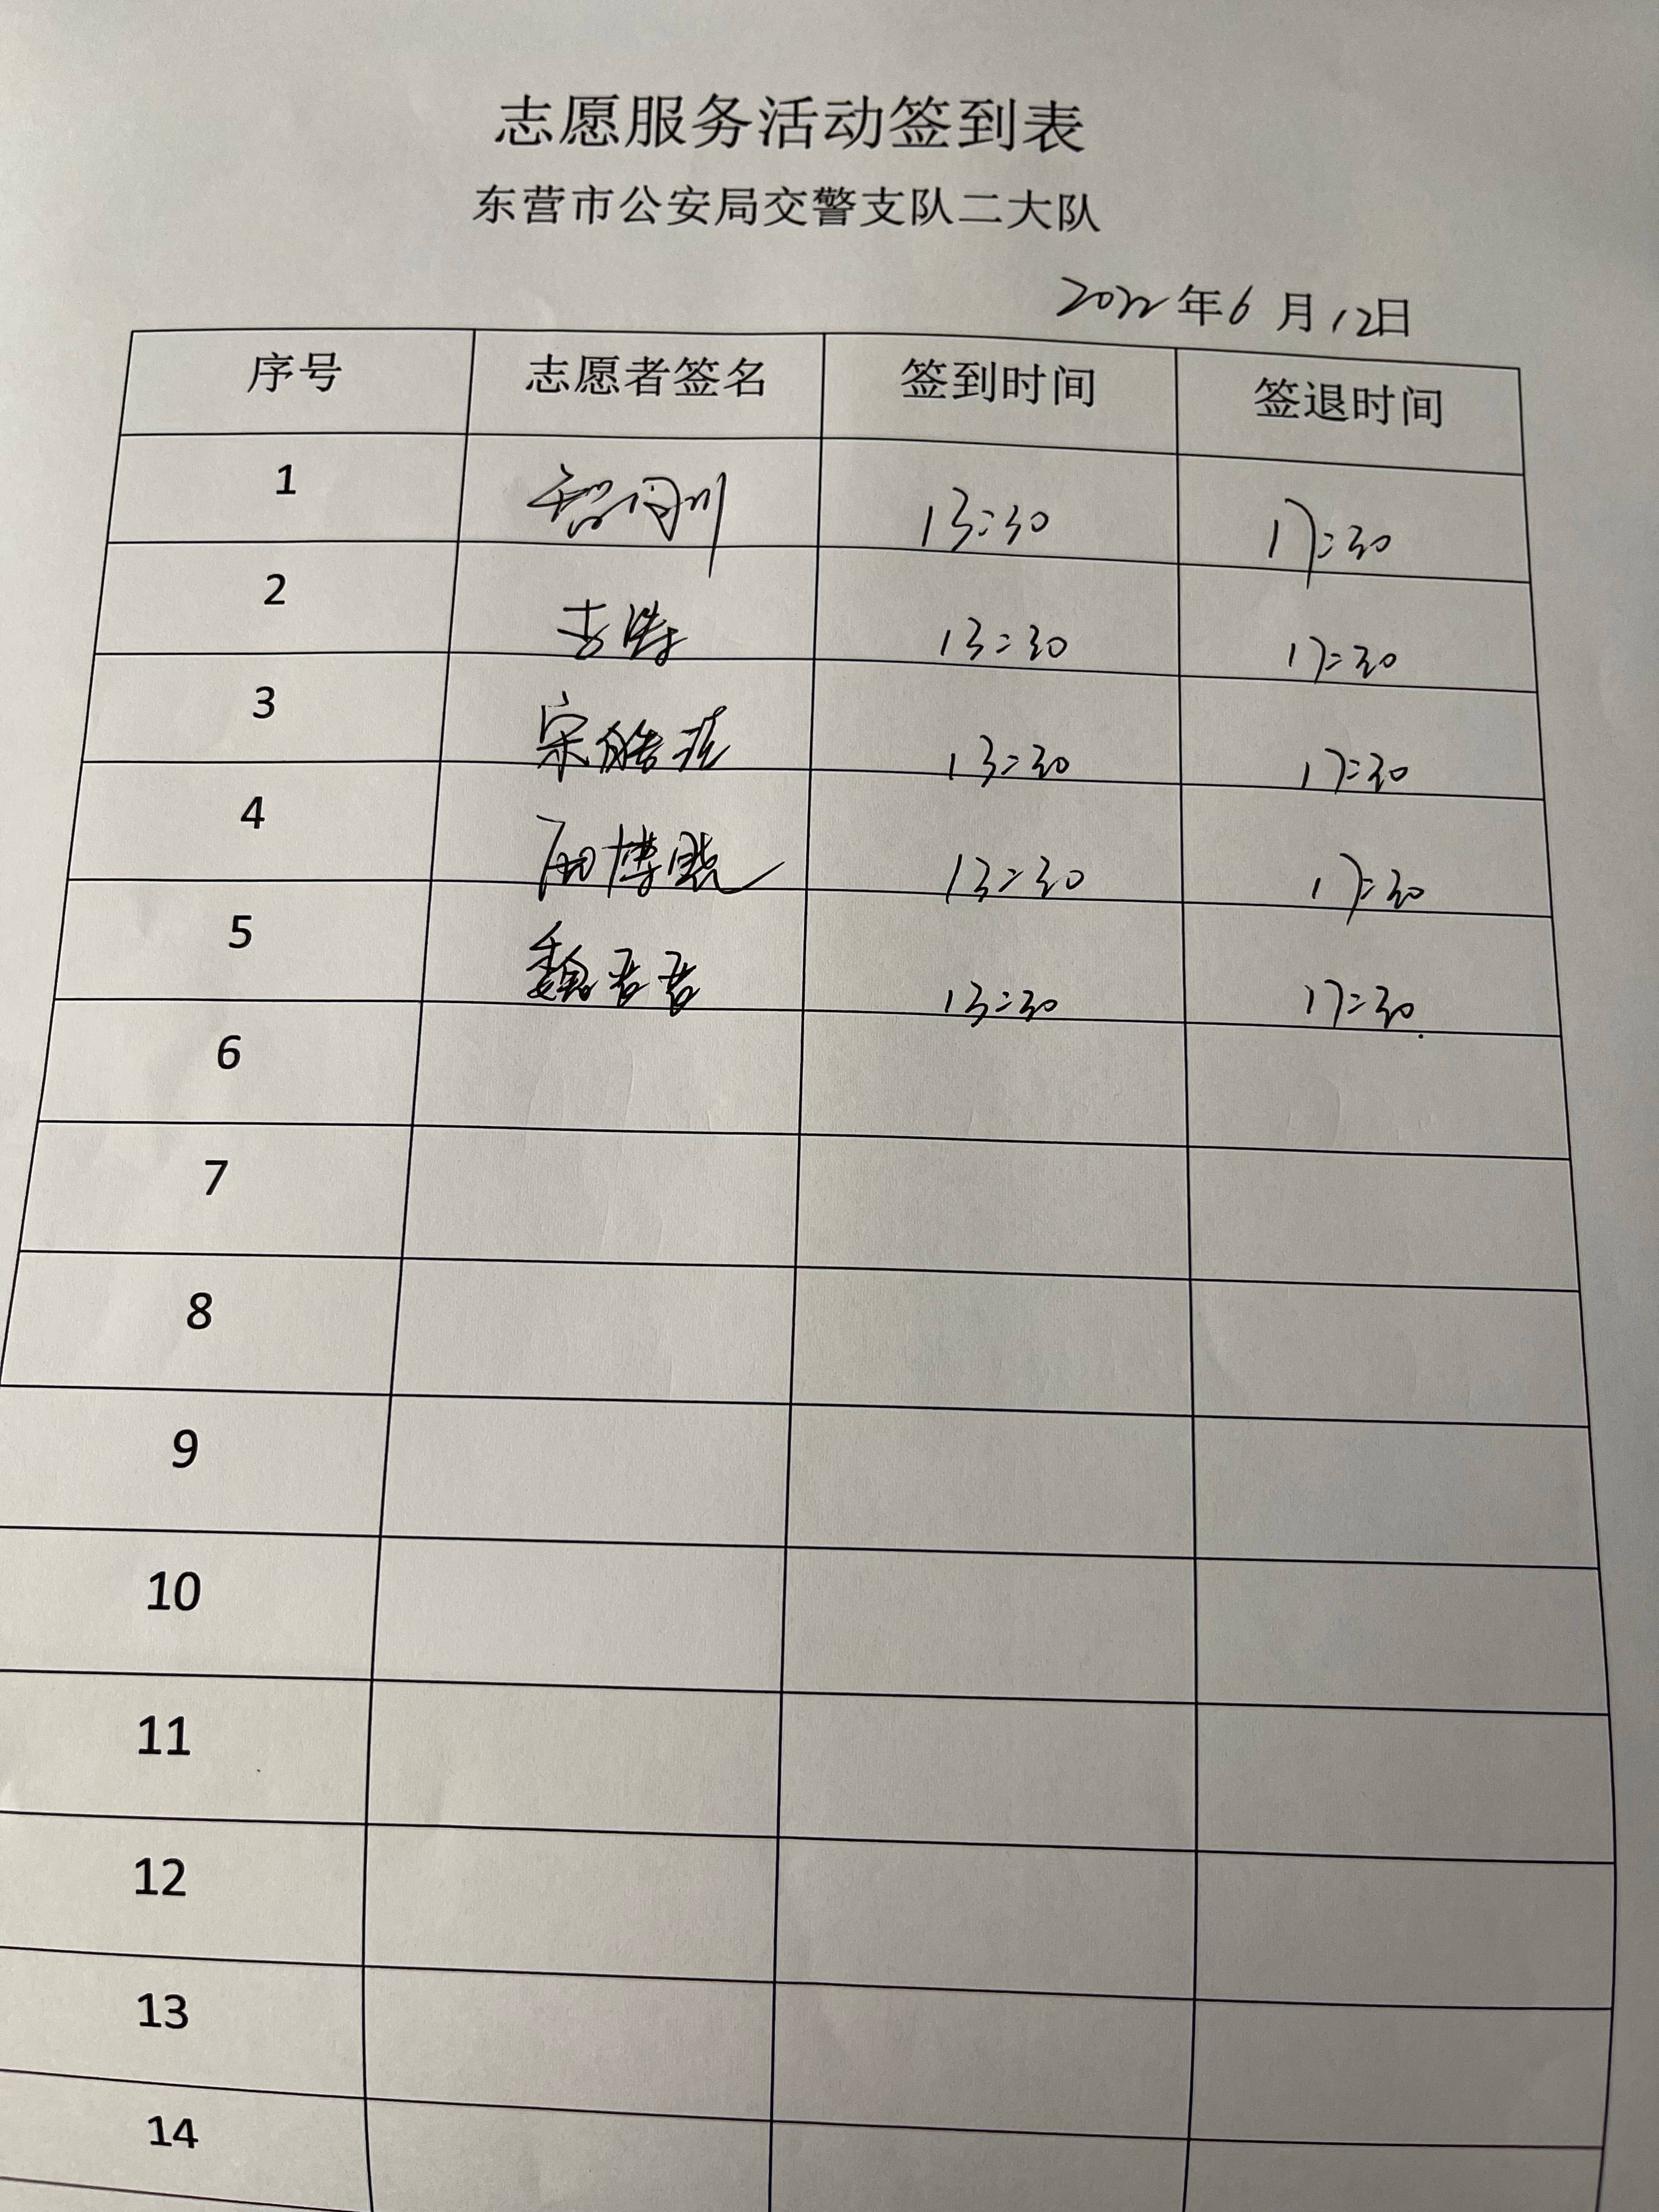 志愿服务活动签到表
东营市公安局交警支队二大队
2022年6月12日
序号 志愿者签名 签到时间 签退时间
1 13:30 17:30
2 13:30 17:30
3 宋皓 13:30 17:30
4 博 13:30 17:30
5 魏君君 13:30 17:30
6
7
8
9
10
11
12
13
14